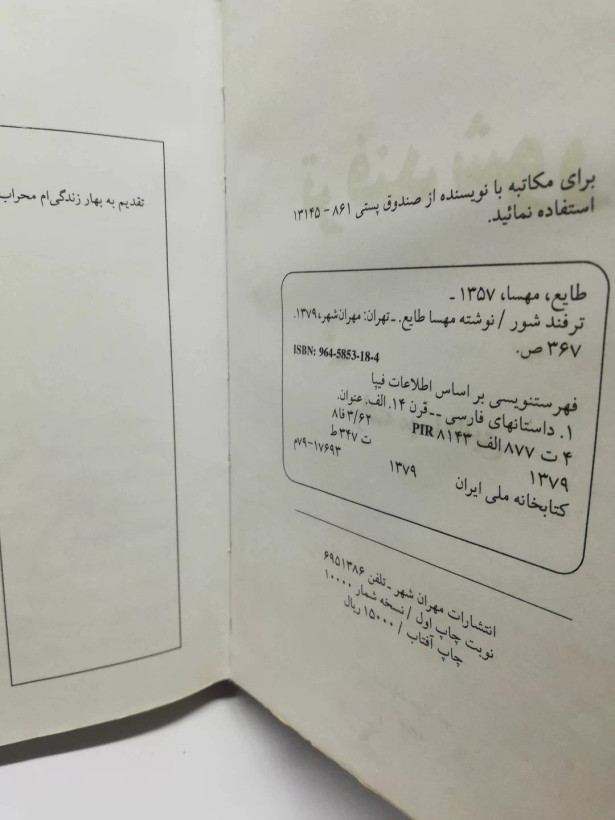 برای مکاتبه با نویسنده از صندوق پستی ۸۶۱ - ۱۳۱۴۵
استفاده نمائید.
طایع، مهسا، ۱۳۵۷ ـ
ترفند شور / نوشته مهسا طایع. ـ تهران: مهران‌شهر، ۱۳۷۹.
۳۶۷ ص.
ISBN: 964-5853-18-4
فهرستنویسی بر اساس اطلاعات فیپا
۱. داستانهای فارسی -- قرن ۱۴. الف. عنوان.
۴ ت ۸۷۷ الف ۸۱۴۳ PIR ۸فا ۳/۶۲
ت ۳۴۷ ط
۱۳۷۹ ۱۳۷۹
کتابخانه ملی ایران ۱۷۶۹۳-۷۹م
انتشارات مهران شهر ـ تلفن ۶۹۵۱۳۸۶
نوبت چاپ اول / نسخه شمار ۱۰۰۰۰
چاپ آفتاب / ۱۵۰۰۰ ریال
تقدیم به بهار زندگی‌ام محراب